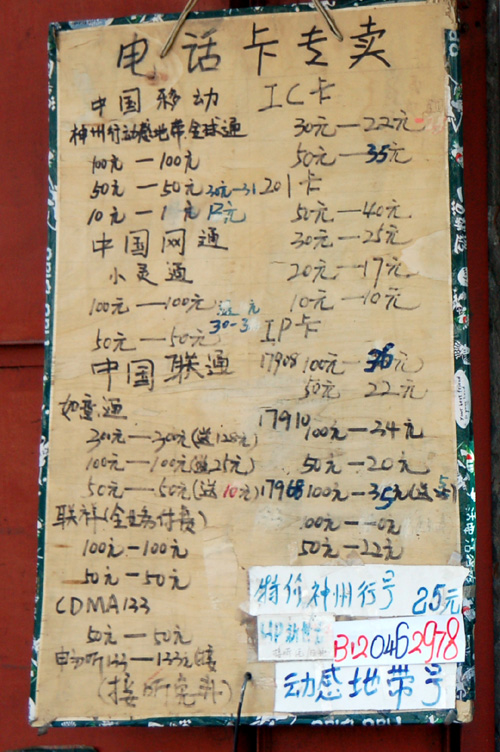 电话卡专卖
中国移动
神州行动感地带全球通
100元—100元
50元—50元 30元—31
10元—1元 12元
中国网通
小灵通
100元—100元
50元—50元 30-3
中国联通
如意通
300元—300元(送120元)
100元—100元(送25元)
50元—50元(送10元)
联祥(全业务付费)
100元—100元
50元—50元
CDMA133
50元—50元
133—133元
(接听免
IC卡
30元—22元
50元—35元
201卡
50元—40元
30元—25元
20元—17元
10元—10元
IP卡
17908 100元—36元
50元 22元
17910 100元—34元
50元—20元
17968 100元—35元(送5)
100元—0元
50元—22元
特价神州行号 25元
B12046 2978
动感地带号